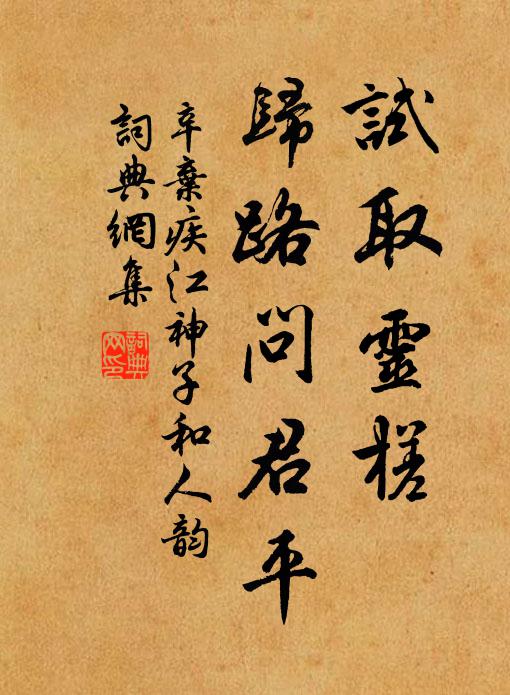 試取靈槎
歸路問君平
辛棄疾江神子和人韵
詞典網集
詞典网印